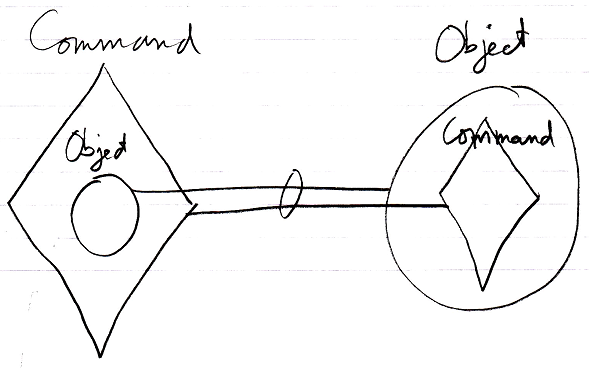 Command
Object
Object
Command